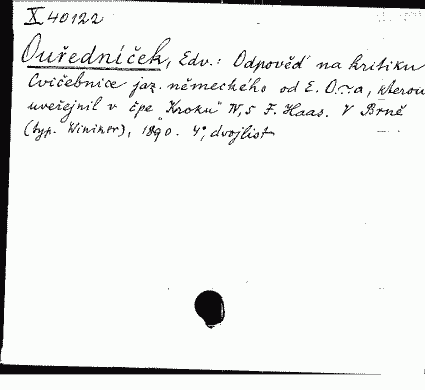 X 40122
Ouředníček, Edv.: Odpověď na kritiku
Cvičebnice jaz. německého od E. O~a, kterou
uveřejnil v čpe "Kroku" IV, 5 F. Haas. V Brně
(typ. Winiker), 1890. 4°, dvojlist